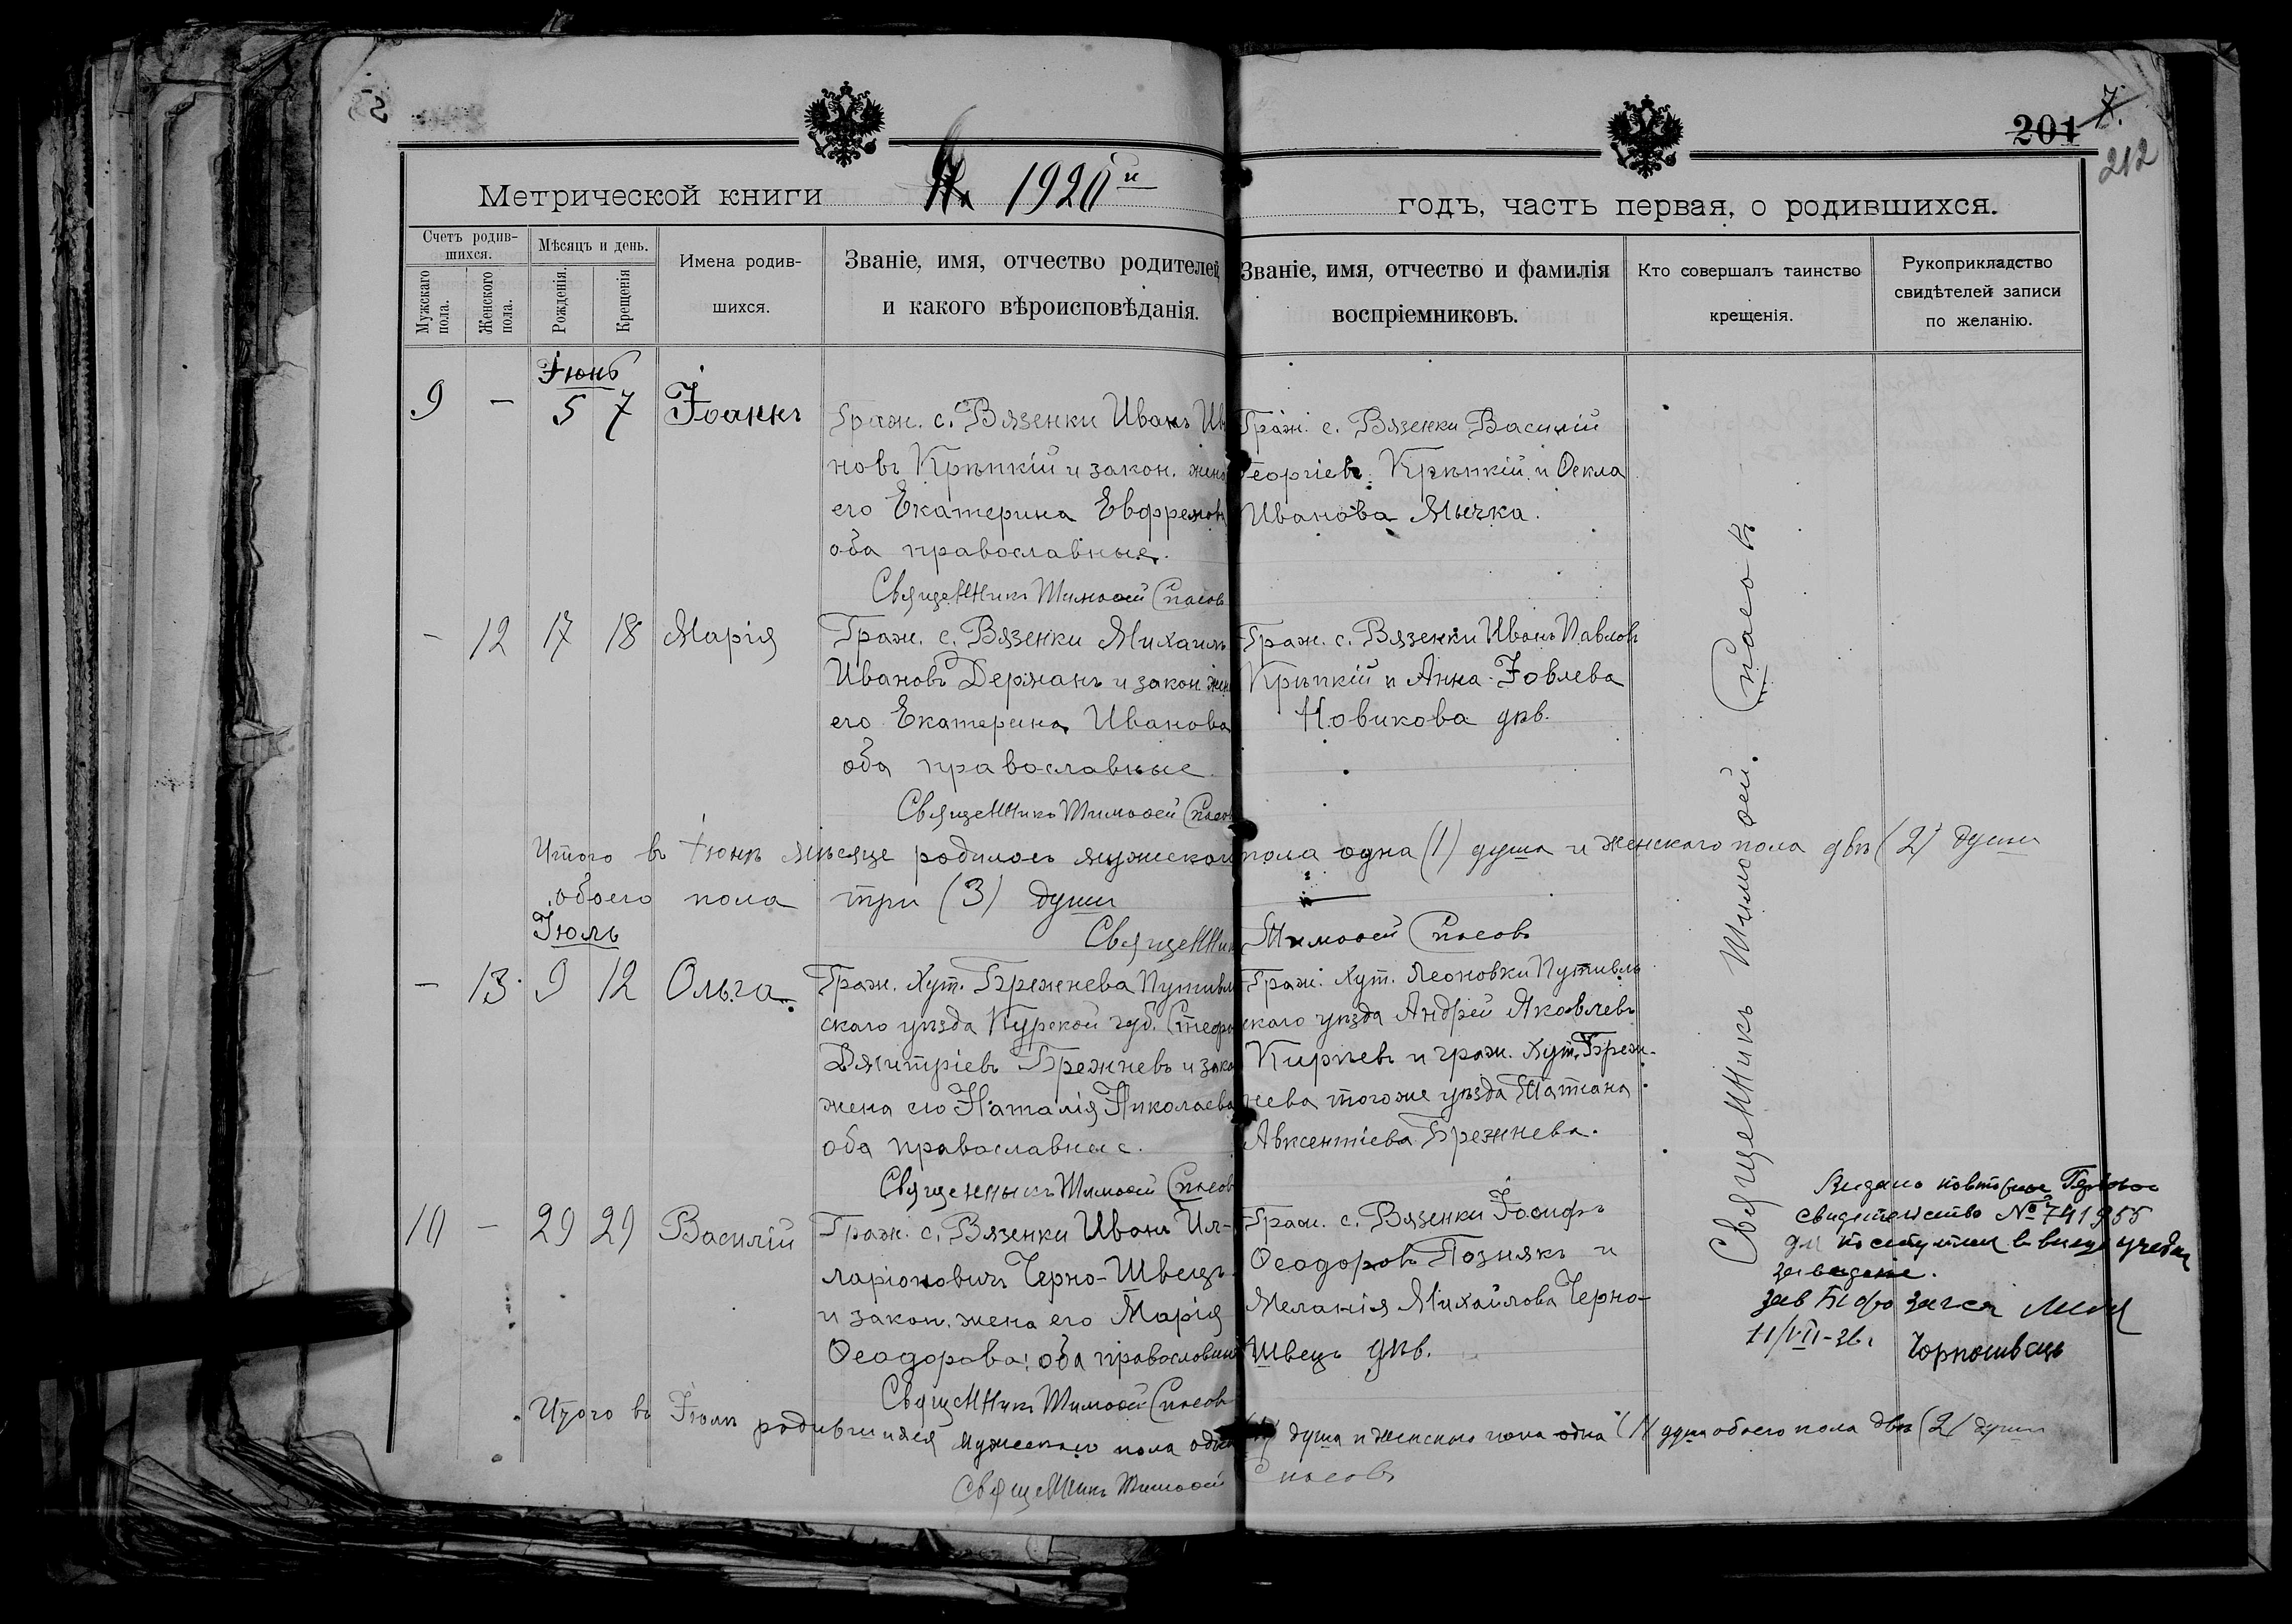 201 7.
212
Метрической книги 1920й
годъ, часть первая, о родившихся.
Счетъ родив-
шихся.
Мужскаго пола.
Женскаго пола.
Мѣсяцъ и день.
Рожденія.
Крещенія
Имена родив-
шихся.
Званіе, имя, отчество родителей
и какого вѣроисповѣданія.
Званіе, имя, отчество и фамилія
воспріемниковъ.
Кто совершалъ таинство
крещенія.
Рукоприкладство
свидѣтелей записи
по желанію.
Іюнь
9 - 5 7 Іоаннъ
Граж. с. Вязенки Иванъ Ив
новъ Крѣпкій и закон. жена
его Екатерина Евфремов
оба православные.
Священникъ Тимоѳей Спасов
Граж. с. Вязенки Василій
Георгіевъ Крѣпкій и Ѳекла
Иванова Мычка.
- 12 17 18 Марія
Граж. с. Вязенки Михаилъ
Ивановъ Держанъ и закон. жен
его Екатерина Иванова
оба православные
Священникъ Тимоѳей Спасов
Граж. с. Вязенки Иванъ Павловъ
Крѣпкій и Анна Іовлева
Новикова дѣв.
Итого въ Іюнѣ мѣсяце родилось мужского пола одна (1) душа и женскаго пола двѣ (2) души
обоего пола три (3) души
Священник Тимоѳей Спасовъ
Іюль
- 13 9 12 Ольга
Граж. Хут. Брежнева Путивль
скаго уѣзда Курской губ. Стефа
Димитріевъ Брежневъ и зако
жена его Наталія Николаева
оба православные.
Священникъ Тимоѳей Спасов
Граж. Хут. Леоновки Путивль
скаго уѣзда Андрей Яковлевъ
Кирѣевъ и граж. Хут. Бреж-
нева того же уѣзда Татіана
Авксентіева Брежнева.
10 - 29 29 Василій
Граж. с. Вязенки Иванъ Ил-
ларіоновичъ Черно-Швецъ
и закон. жена его Марія
Ѳеодорова: оба православны
Священникъ Тимоѳей Спасов
Граж. с. Вязенки Іосифъ
Ѳеодоровъ Познякъ и
Меланія Михайлова Черно-
Швецъ дѣв.
Священникъ Тимоѳей Спасовъ
Видано повторное
свидетельство № 741955
для поступлен в учебн
заведение.
зав Бюро загса
11/VII-36г Чорношвець
Итого въ Іюлѣ родившихся мужескаго пола одна (1) душа и женскаго пола одна (1) душа обоего пола двѣ (2) души
Священникъ Тимоѳей Спасовъ